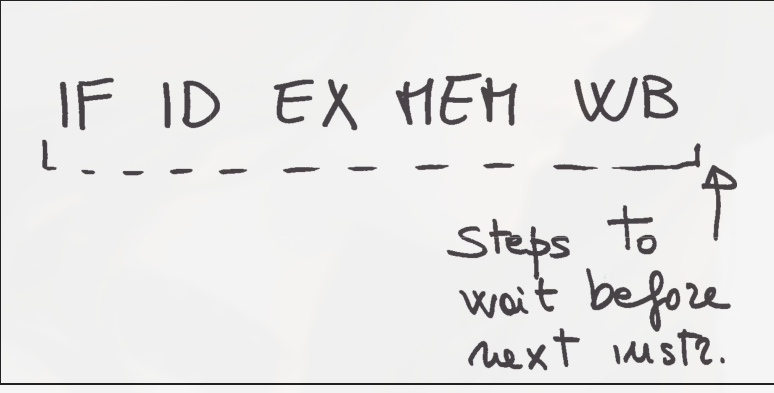 IF ID EX MEM WB
Steps to
wait before
next instr.